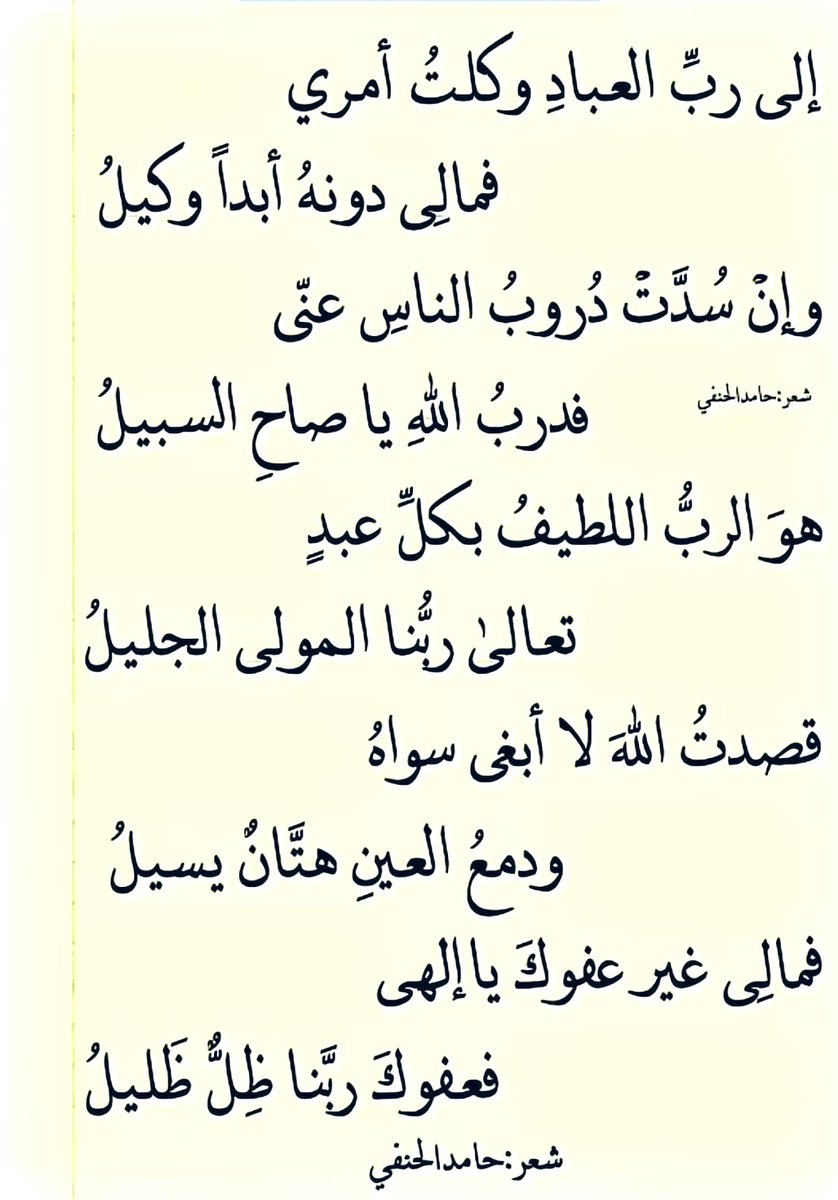 إلى ربِّ العبادِ وكلتُ أمري
فمالِى دونهُ أبداً وكيلُ
وإنْ سُدَّتْ دُروبُ الناسِ عنّى
شعر:حامدالحنفي
فدربُ اللهِ يا صاحِ السبيلُ
هوَ الربُّ اللطيفُ بكلِّ عبدٍ
تعالىٰ ربُّنا المولى الجليلُ
قصدتُ اللهَ لا أبغى سواهُ
ودمعُ العينِ هتَّانٌ يسيلُ
فمالِى غير عفوكَ يا إلهى
فعفوكَ ربَّنا ظِلٌّ ظَليلُ
شعر:حامدالحنفي